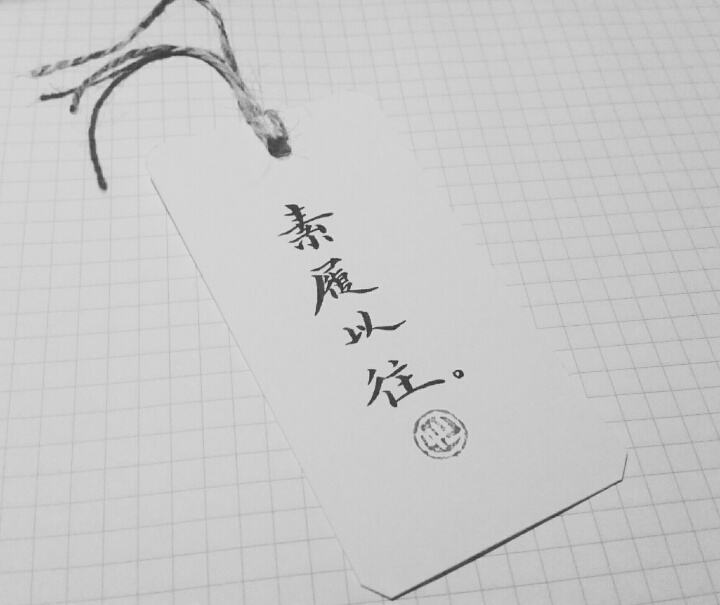 素履以往。